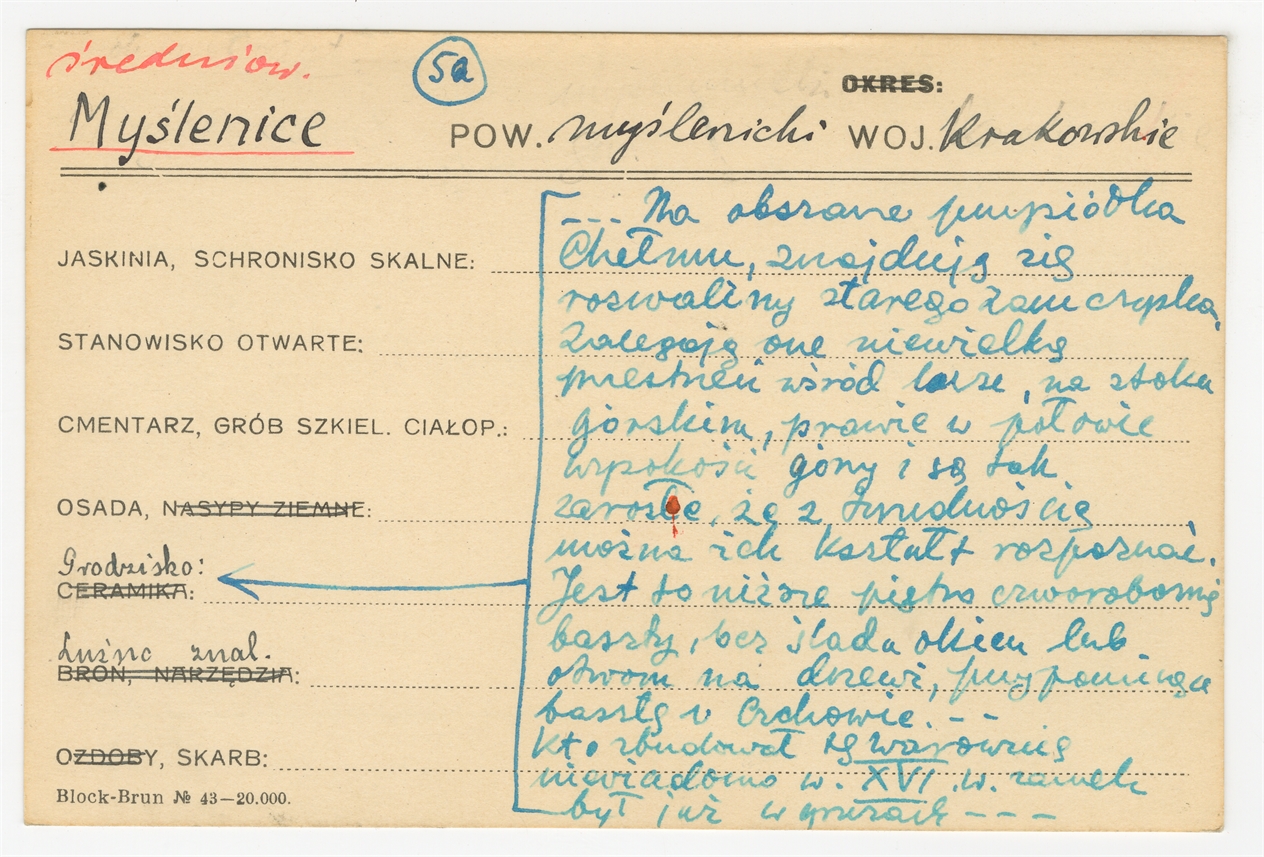 średniow.
5a
OKRES:
Myślenice POW. myślenicki WOJ. Krakowskie
--- Na obszarze przysiółka
JASKINIA, SCHRONISKO SKALNE: Chełmu, znajdują się
rozwaliny starego zamczyska.
STANOWISKO OTWARTE: Zalegają one niewielką
przestrzeń wśród lasu, na stoku
CMENTARZ, GRÓB SZKIEL. CIAŁOP.: górskim, prawie w połowie
wysokości góry i są tak
OSADA, NASYPY ZIEMNE: zarosłe, że z trudnością
można ich kształt rozpoznać.
Grodzisko:
CERAMIKA: Jest to niższe piętro czworobocznej
Luźne znal. baszty, bez śladu okien lub
BROŃ, NARZĘDZIA: otworu na drzwi, przypominające
basztę w Czchowie. --
Kto zbudował tę warownię
OZDOBY, SKARB: niewiadomo w. XVI w. zamek
Block-Brun № 43—20.000. był już w gruzach ---